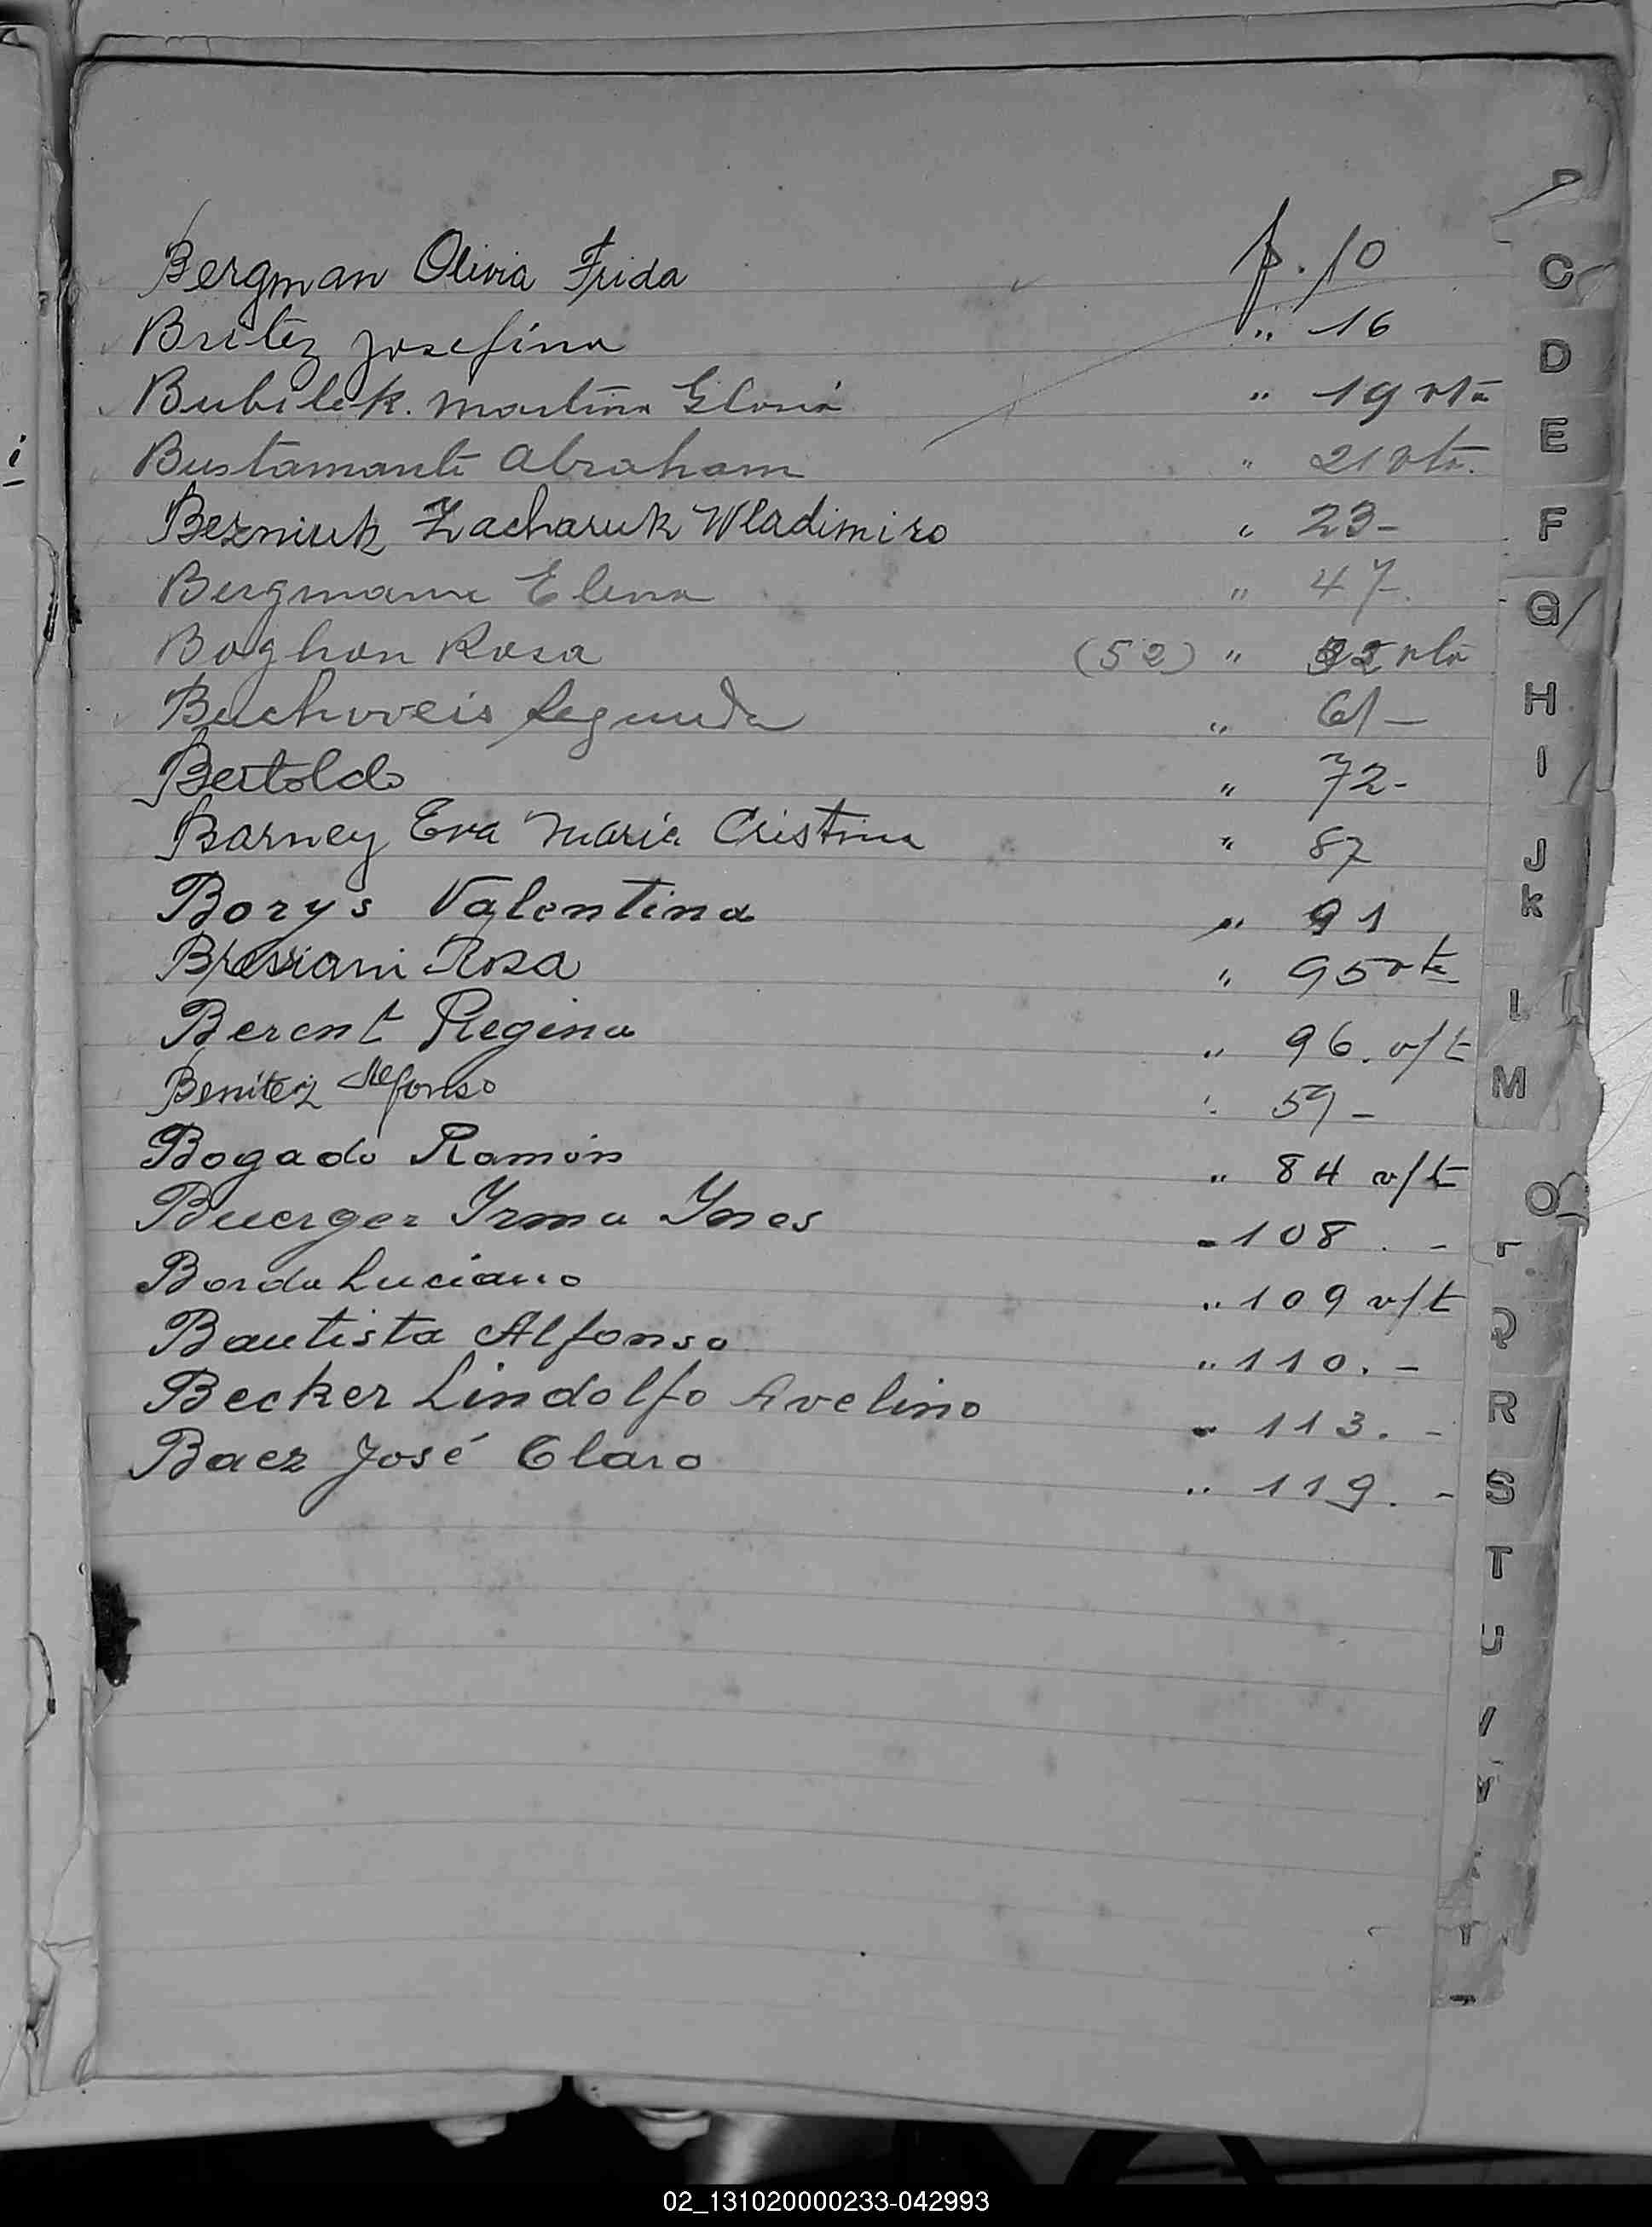 Bergman Olivia Frida p. 10
Britez Josefina " 16
Bubilek. Martina Gloria " 19 vta
Bustamante Abraham " 21 vta.
Bezniuk Zacharuk Wladimiro " 23-
Bergmann Elena " 47-.
Boghon Rosa (52) " 32 vta
Buchoveis Segunda " 61 -
Bertoldo " 72-
Barney Eva Maria Cristina " 87
Borys Valentina " 91
Bressiani Rosa " 95 vta
Berent Regina " 96. v/t
Benitez Alfonso " 59 -
Bogado Ramón " 84 v/t
Buerger Yrma Ynes " 108. -
Borda Luciano " 109 v/t
Bautista Alfonso " 110. -
Becker Lindolfo Avelino " 113. -
Baez José Claro " 119. -
C
D
E
F
G
H
I
J
K
L
M
O
Q
R
S
T
U
V
Y
02_131020000233-042993